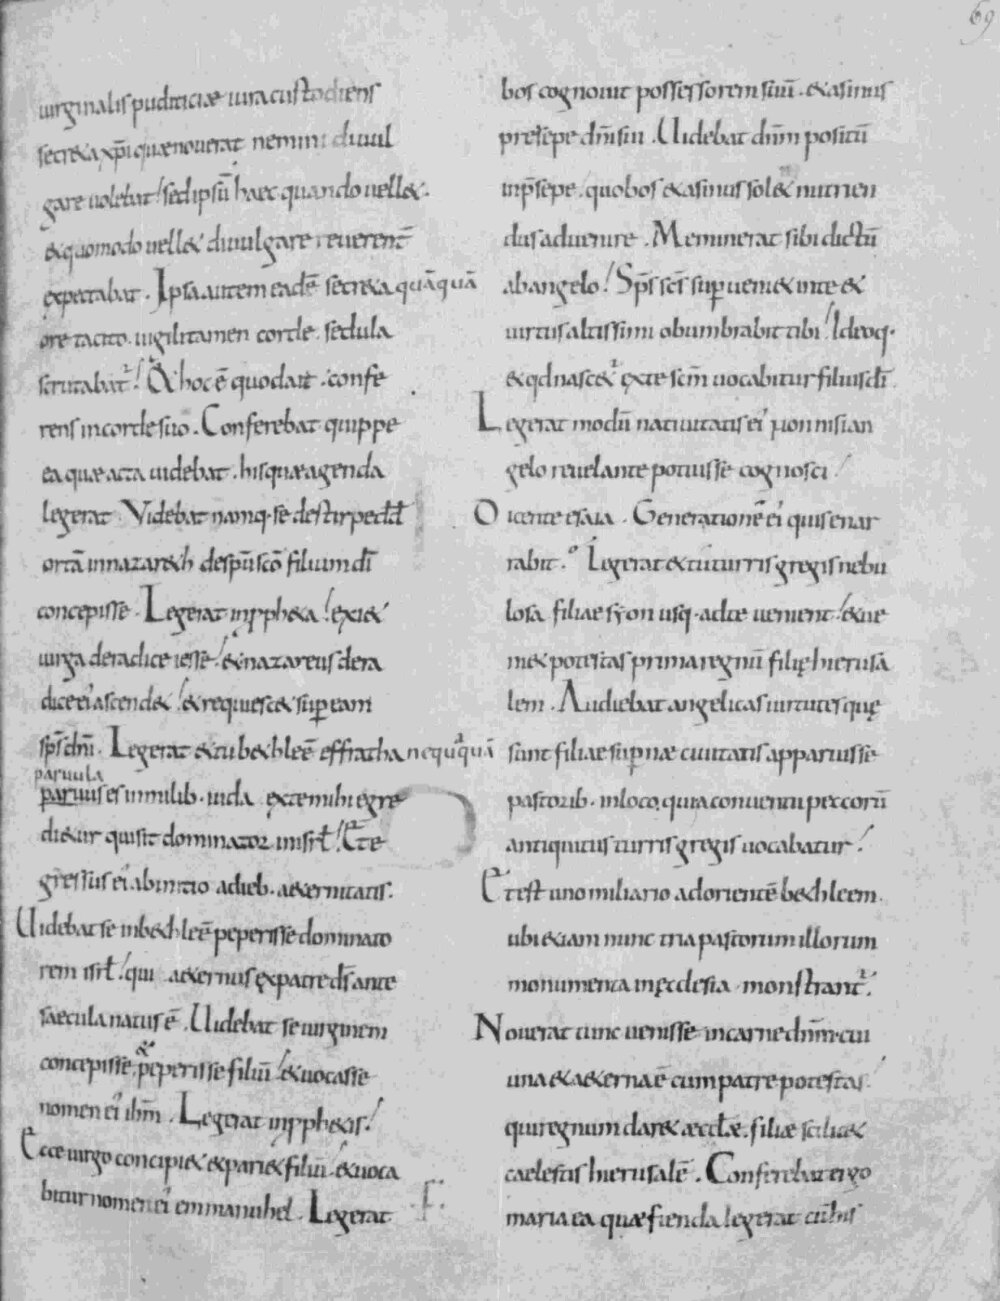 69
uirginalis pudiciciae iura custodiens
secreta xp̄i quae nouerat nemini diuul
gare uolebat! sed ipsū haec quando uell&.
& quomodo uell& diuulgare reuerent̄
expectabat. Ipsa autem eadē secreta quāquā
ore tacito. uigili tamen corde. sedula
scrutabat! & hoc ē quod ait. confe
rens in corde suo. Conferebat quippe
ea quae acta uidebat. his quae agenda
legerat. Videbat namq· se de stirpe dd̄
ortā in nazar&h de sp̄u sc̄o filium dī
concepisse. Legerat in pph&a! exi&
uirga de radice iesse! & nazareus de ra
dice ei' ascend&! & requiesc& sup eam
sp̄s dn̄i. Legerat & tu b&hleē effratha nequaquā
paruula
paruus es in milib· iuda. ex te mihi egre
di&ur qui sit dominator in isrł! & e
gressus ei' ab initio a dieb· a&ernitatis.
Uidebat se in b&hleē peperisse dominato
rem isrł! qui a&ernus ex patre ds̄ ante
saecula natus ē. Uidebat se uirginem
concepisse. & peperisse filiū! & uocasse
nomen ei' ih̄m. Legerat in pph&is!
Ecce uirgo concipi& & pari& filiū! & uoca
bitur nomen ei' emmanuhel. Legerat
bos cognouit possessorem suū. & asinus
presepe dn̄i sui. Uidebat dn̄m positū
in p̄sepe. quo bos & asinus sol& nutrien
dus aduenire. Meminerat sibi dictū
ab angelo! Sp̄s sc̄s sup ueni& in te &
uirtus altissimi obumbrabit tibi! Ideoq·
& qd nasc& ex te sc̄m uocabitur filius dī
Legerat modū natiuitatis ei' non nisi an
gelo reuelante potuisse cognosci!
Dicente esaia. Generationē ei' quis enar
rabit. Legerat & tu turris gregis nebu
losa filiae syon usq· ad te uenient! & ue
ni& potestas prima regnū filię hierusa
lem. Audiebat angelicas uirtutes quę
sunt filiae sup̄nae ciuitatis apparuisse
pastorib· in loco. qui a conuentu peccorū
antiquitus turris gregis uocabatur!
& est uno miliario ad orientē b&hleem.
ubi &iam nunc tria pastorum illorum
monumenta in ęcclesia monstrant!
Nouerat tunc uenisse in carne dn̄m. cui
una & a&erna ē cum patre potestas!
qui regnum dar& aeccłae. filiae scilic&
caelestis hierusalē. Conferebat ergo
maria ea quae fienda legerat cū his